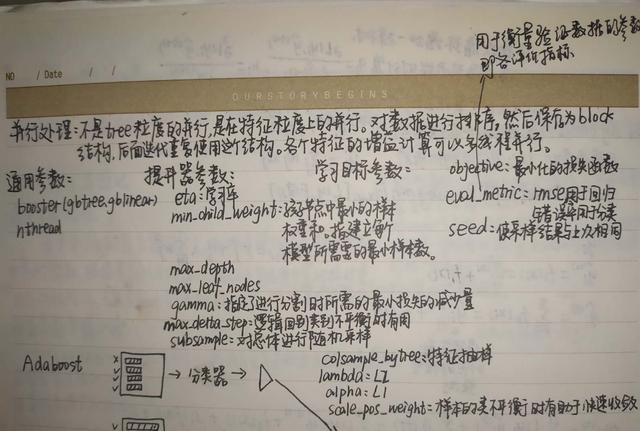 用于衡量验证数据的参数
即各评价指标
NO / Date / /
OURSTORYBEGINS
并行处理:不是tree粒度的并行,是在特征粒度上的并行。对数据进行排序,然后保存为block
结构,后面迭代重复使用这个结构。各个特征的增益计算可以多线程并行。
通用参数:
booster(gbtree,gblinear)
nthread
提升器参数:
eta:学习率
min_child_weight:孩子节点中最小的样本
权重和。指建立每个
模型所需要的最小样本数。
max_depth
max_leaf_nodes
gamma:指定了进行分割时所需的最小损失的减少量
max_delta_step:逻辑回归类别不平衡时有用
subsample:对总体进行随机采样
colsample_bytree:特征抽样
lambda:L2
alpha:L1
scale_pos_weight:样本的类不平衡时有助于快速收敛
学习目标参数:
objective:最小化的损失函数
eval_metric:rmse用于回归
错误率用于分类
seed:使采样结果与上次相同
Adaboost
分类器